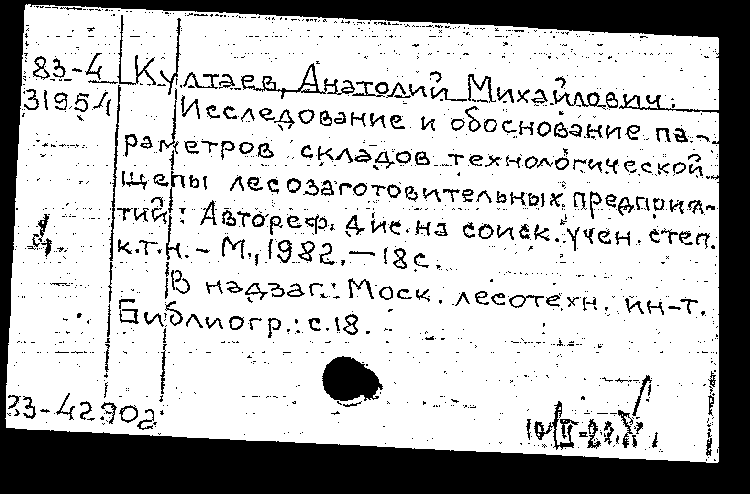 83-4 Култаев, Анатолий Михайлович.
31954 Исследование и обоснование па-
раметров складов технологической
щепы лесозаготовительных предприя-
тий: Автореф. дис. на соиск. учен. степ.
к.т.н. - М., 1982. - 18 с.
В надзаг.: Моск. лесотехн. ин-т.
Библиогр.: с. 18.
83-42902